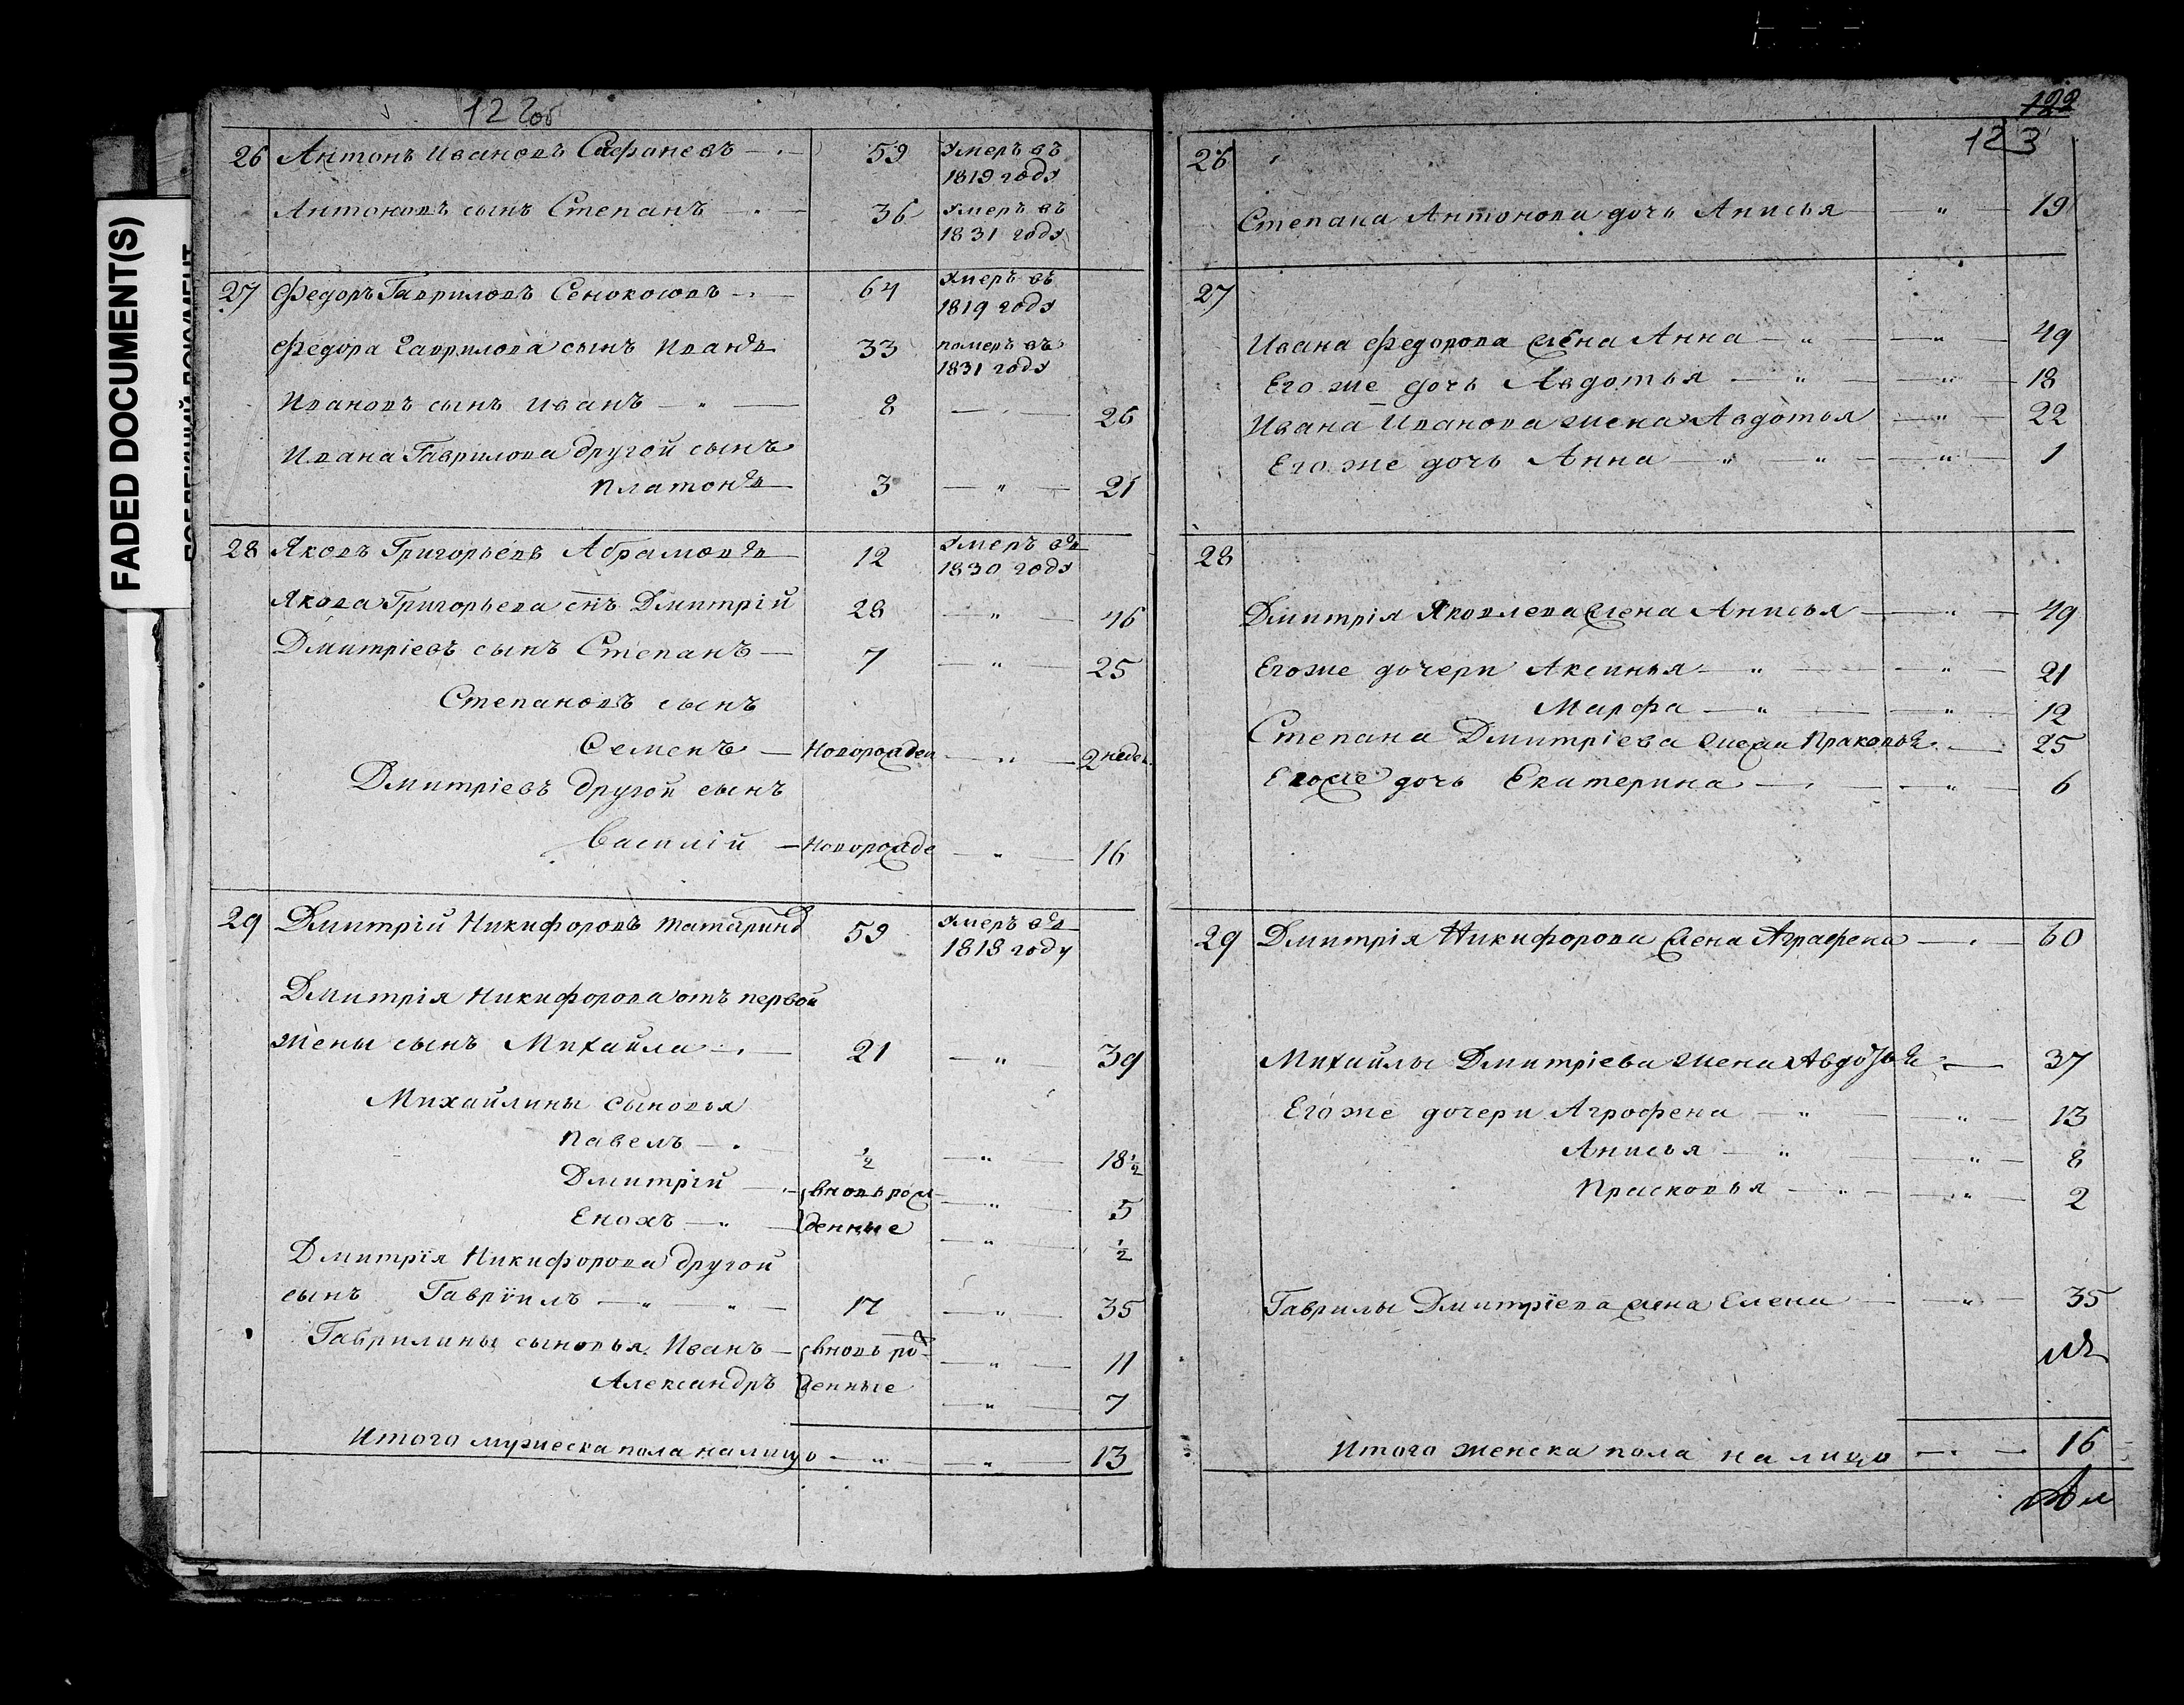 FADED DOCUMENT(S)
122 об
26 Антонъ Ивановъ Сафоновъ 59 Умеръ въ
1819 году
Антоновъ сынъ Степанъ 36 Умеръ въ
1831 году
27 Федоръ Гавриловъ Сенокосовъ 64 Умеръ въ
1819 году
Федора Гаврилова сынъ Иванъ 33 померъ въ
1831 году
Ивановъ сынъ Иванъ 8 26
Ивана Гаврилова другой сынъ
Платонъ 3 21
28 Яковъ Григорьевъ Абрамовъ 12 Умеръ въ
1830 году
Якова Григорьева снъ Дмитрій 28 46
Дмитріевъ сынъ Степанъ 7 25
Степановъ сынъ
Семенъ Новорожден 2 недел.
Дмитріевъ другой сынъ
Василій Новорожде 16
29 Дмитрій Никифоровъ Татаринъ 59 Умеръ въ
1818 году
Дмитрія Никифорова отъ первой
жены сынъ Михайла 21 39
Михайлины сыновья
Павелъ ½ 18½
Дмитрій вновь рож 5
Енохъ денные ½
Дмитрія Никифорова другой
сынъ Гавріилъ 17 35
Гаврилины сыновья Иванъ вновь рож 11
Александръ денные 7
Итого мужеска пола налицо 13
122
123
26
Степана Антонова дочь Анисья 19
27
Ивана Федорова жена Анна 49
Его же дочь Авдотья 18
Ивана Иванова жена Авдотья 22
Его же дочь Анна 1
28
Дмитрія Яковлева жена Анисья 49
Его же дочери Аксинья 21
Марфа 12
Степана Дмитріева жена Праковья 25
Его же дочь Екатерина 6
29 Дмитрія Никифорова жена Аграфена 60
Михайлы Дмитріева жена Авдотья 37
Его же дочери Агрофена 13
Анисья 8
Прасковья 2
Гаврилы Дмитріева жена Елена 35
Итого женска пола на лицо 16